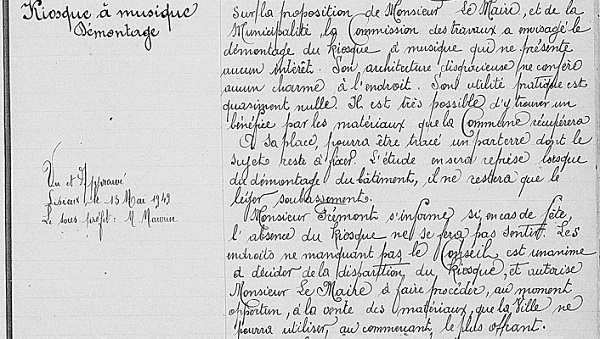 Kiosque à musique
Démontage
Sur la proposition de Monsieur Le Maire, et de la
Municipalité, la Commission des travaux a envisagé le
démontage du kiosque à musique qui ne présente
aucun intérêt. Son architecture disgracieuse ne confère
aucun charme à l'endroit. Son utilité pratique est
quasiment nulle. Il est très possible d'y trouver un
bénéfice par les matériaux que la Commune récupérera
A sa place, pourra être tracé un parterre dont le
sujet reste à fixer. L'étude en sera reprise lorsque
du démontage du bâtiment, il ne restera que le
léger soubassement.
Monsieur Frémont s'informe si, en cas de fête,
l'absence du kiosque ne se fera pas sentir. Les
endroits ne manquant pas le Conseil est unanime
à décider de la disparition du kiosque, et autorise
Monsieur Le Maire à faire procéder, au moment
opportun, à la vente des matériaux, que la Ville ne
pourra utiliser, au commerçant, le plus offrant.
Vu et Approuvé
Lisieux le 13 Mai 1949
Le sous préfet : M